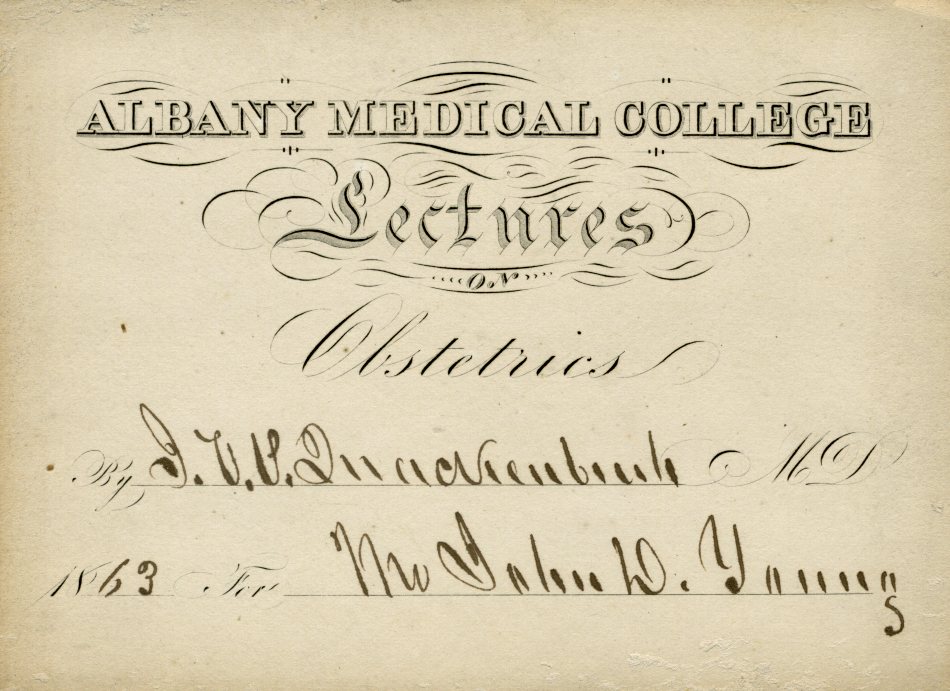 ALBANY MEDICAL COLLEGE
Lectures
ON
Obstetrics
By J. V. P. Quackenbush MD
1863 For Mr John D. Young